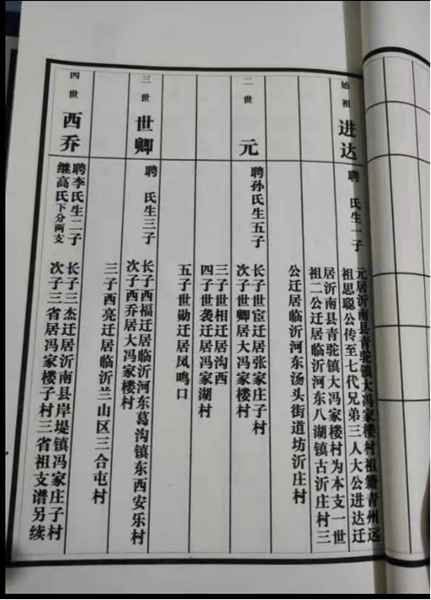 始祖
进达
聘 氏生一子
元居沂南县青驼镇大冯家楼村祖籍青州远
祖思聪公传至七代兄弟三人大公进达迁
居沂南县青驼镇大冯家楼村为本支一世
祖二公迁居临沂河东八湖镇古沂庄村三
公迁居临沂河东汤头街道坊沂庄村
二世
元
聘孙氏生五子
长子世宦迁居张家庄子村
次子世卿居大冯家楼村
三子世相迁居沟西
四子世袭迁居冯家湖村
五子世勋迁居凤鸣口
三世
世卿
聘 氏生三子
长子西福迁居临沂河东葛沟镇东西安乐村
次子西乔居大冯家楼村
三子西亮迁居临沂兰山区三合屯村
四世
西乔
聘李氏生二子
继高氏下分两支
长子三杰迁居沂南县岸堤镇冯家庄子村
次子三省居冯家楼子村三省祖支谱另续